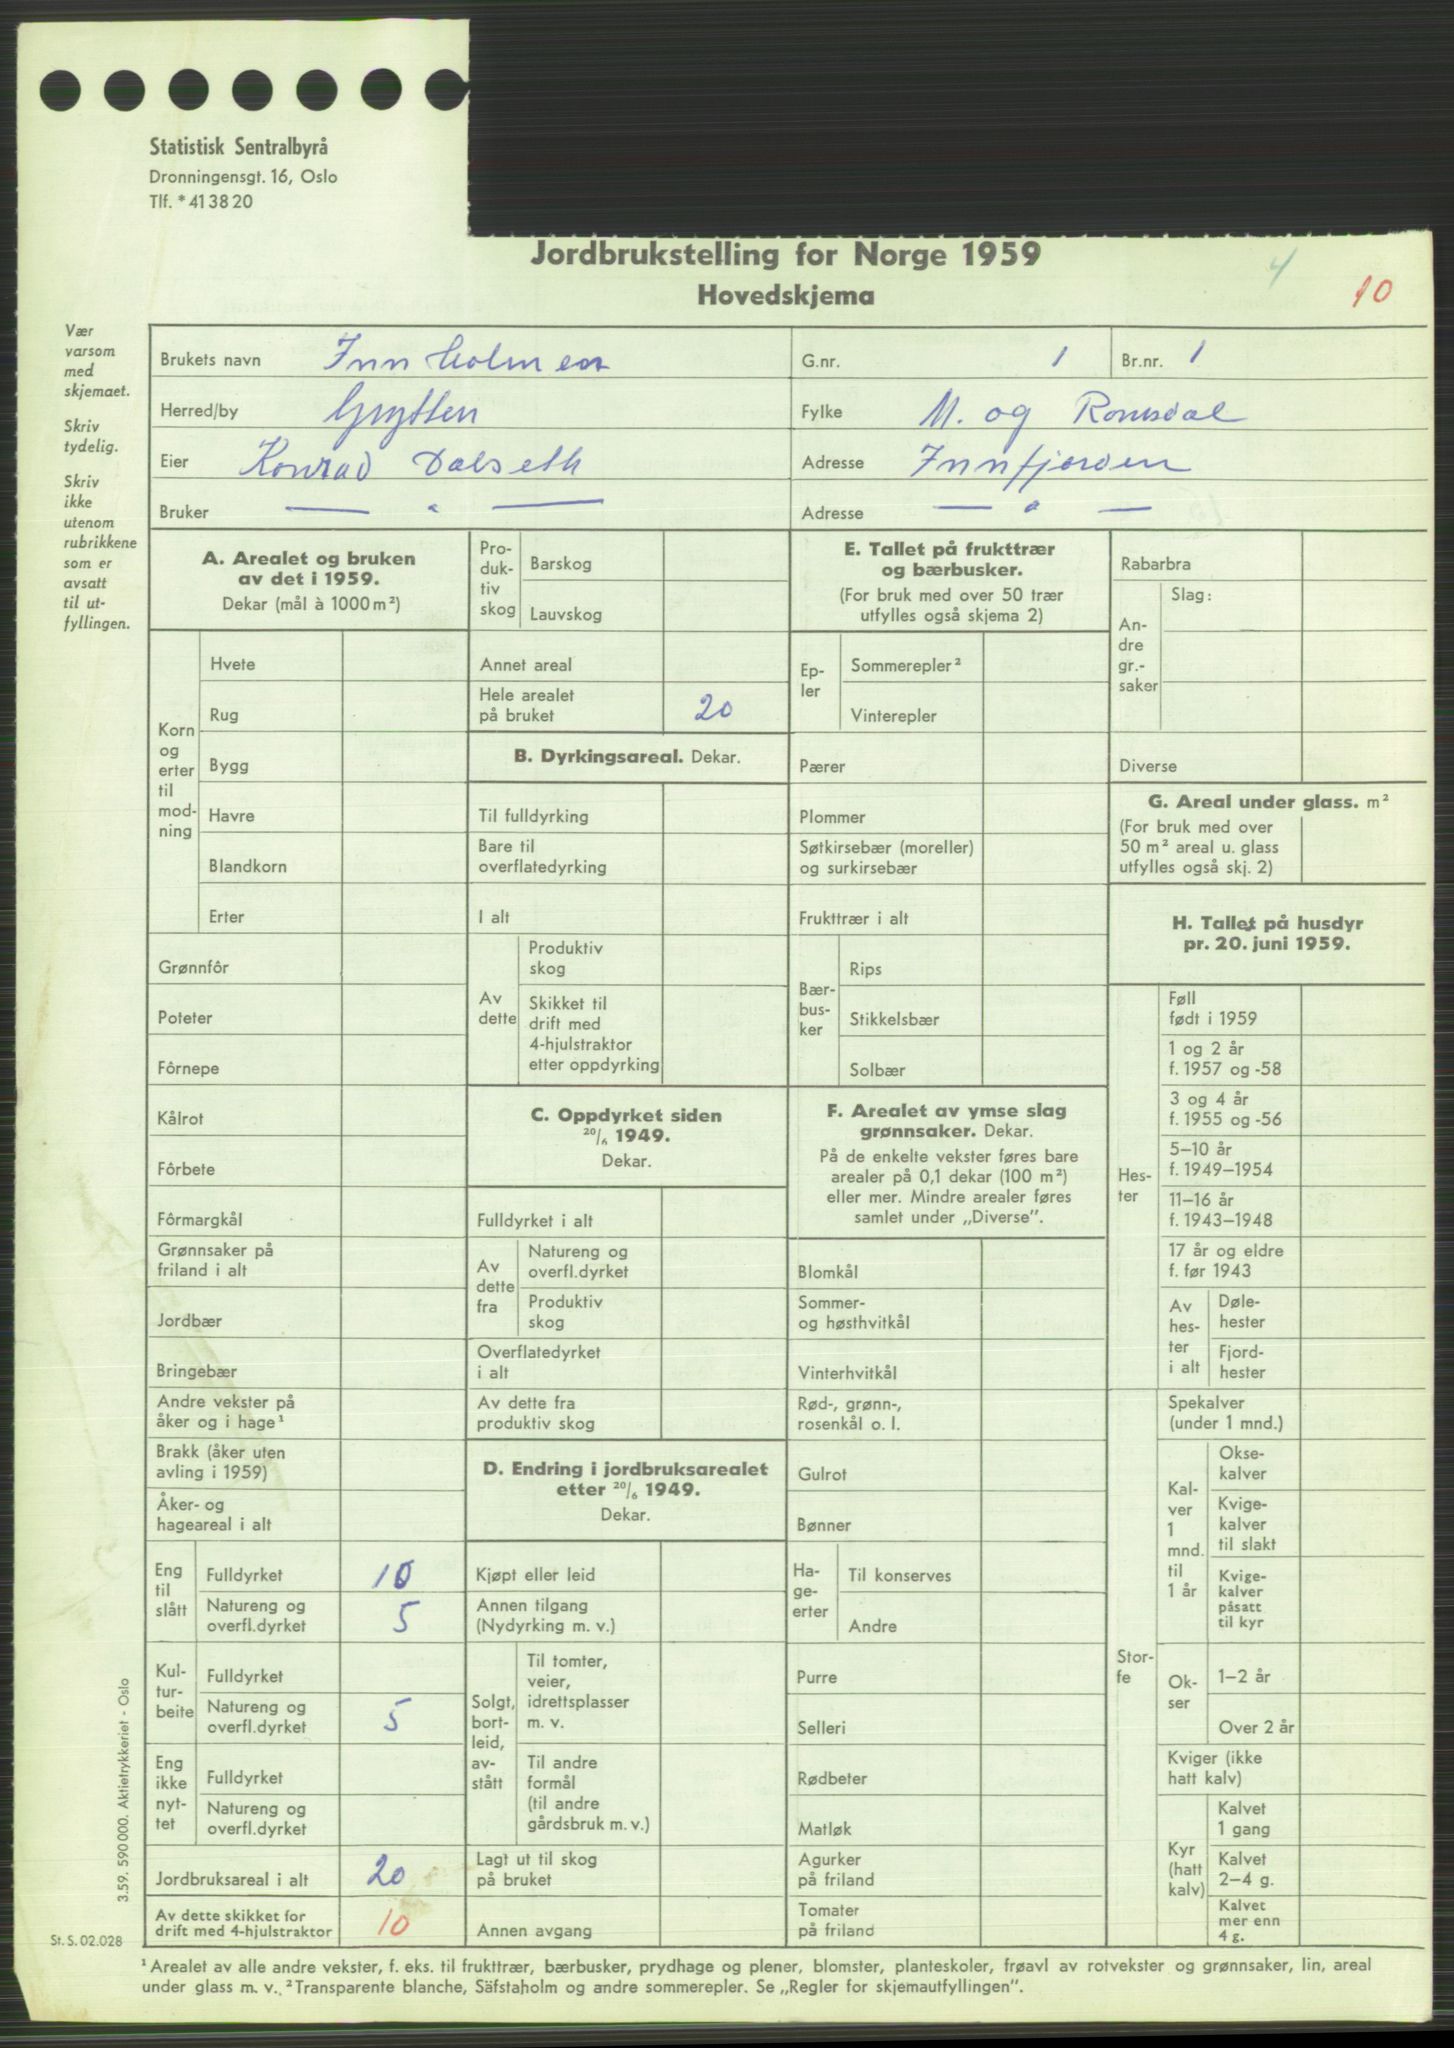 Statistisk Sentralbyrå
Dronningensgt. 16, Oslo
Tlf. * 41 38 20
Jordbrukstelling for Norge 1959
Hovedskjema
4
10
Vær
varsom
med
skjemaet.
Skriv
tydelig.
Skriv
ikke
utenom
rubrikkene
som er
avsatt
til ut-
fyllingen.
Brukets navn Innholmen G.nr. 1 Br.nr. 1
Herred/by Grytten Fylke M. og Romsdal
Eier Konrad Dalseth Adresse Innfjorden
Bruker — " — Adresse — " —
A. Arealet og bruken
av det i 1959.
Dekar (mål à 1000 m²)
Korn
og
erter
til
mod-
ning
Hvete
Rug
Bygg
Havre
Blandkorn
Erter
Grønnfôr
Poteter
Fôrnepe
Kålrot
Fôrbete
Fôrmargkål
Grønnsaker på
friland i alt
Jordbær
Bringebær
Andre vekster på
åker og i hage¹
Brakk (åker uten
avling i 1959)
Åker- og
hageareal i alt
Eng
til
slått
Fulldyrket 10
Natureng og
overfl.dyrket 5
Kul-
tur-
beite
Fulldyrket
Natureng og
overfl.dyrket 5
Eng
ikke
nyt-
tet
Fulldyrket
Natureng og
overfl.dyrket
Jordbruksareal i alt 20
Av dette skikket for
drift med 4-hjulstraktor 10
Pro-
duk-
tiv
skog
Barskog
Lauvskog
Annet areal
Hele arealet
på bruket 20
B. Dyrkingsareal. Dekar.
Til fulldyrking
Bare til
overflatedyrking
I alt
Av
dette
Produktiv
skog
Skikket til
drift med
4-hjulstraktor
etter oppdyrking
C. Oppdyrket siden
20/6 1949.
Dekar.
Fulldyrket i alt
Av
dette
fra
Natureng og
overfl.dyrket
Produktiv
skog
Overflatedyrket
i alt
Av dette fra
produktiv skog
D. Endring i jordbruksarealet
etter 20/6 1949.
Dekar.
Kjøpt eller leid
Annen tilgang
(Nydyrking m. v.)
Solgt,
bort-
leid,
av-
stått
Til tomter,
veier,
idrettsplasser
m. v.
Til andre
formål
(til andre
gårdsbruk m. v.)
Lagt ut til skog
på bruket
Annen avgang
E. Tallet på frukttrær
og bærbusker.
(For bruk med over 50 trær
utfylles også skjema 2)
Ep-
ler
Sommerepler²
Vinterepler
Pærer
Plommer
Søtkirsebær (moreller)
og surkirsebær
Frukttrær i alt
Bær-
bus-
ker
Rips
Stikkelsbær
Solbær
F. Arealet av ymse slag
grønnsaker. Dekar.
På de enkelte vekster føres bare
arealer på 0,1 dekar (100 m²)
eller mer. Mindre arealer føres
samlet under „Diverse”.
Blomkål
Sommer-
og høsthvitkål
Vinterhvitkål
Rød-, grønn-,
rosenkål o. l.
Gulrot
Bønner
Ha-
ge-
erter
Til konserves
Andre
Purre
Selleri
Rødbeter
Matløk
Agurker
på friland
Tomater
på friland
Rabarbra
An-
dre
gr.-
saker
Slag:
Diverse
G. Areal under glass. m²
(For bruk med over
50 m² areal u. glass
utfylles også skj. 2)
H. Tallet på husdyr
pr. 20. juni 1959.
Hes-
ter
Føll
født i 1959
1 og 2 år
f. 1957 og -58
3 og 4 år
f. 1955 og -56
5–10 år
f. 1949–1954
11–16 år
f. 1943–1948
17 år og eldre
f. før 1943
Av
hes-
ter
i alt
Døle-
hester
Fjord-
hester
Stor-
fe
Spekalver
(under 1 mnd.)
Kal-
ver
1
mnd.
til
1 år
Okse-
kalver
Kvige-
kalver
til slakt
Kvige-
kalver
påsatt
til kyr
Ok-
ser
1–2 år
Over 2 år
Kviger (ikke
hatt kalv)
Kyr
(hatt
kalv)
Kalvet
1 gang
Kalvet
2–4 g.
Kalvet
mer enn
4 g.
3.59. 590 000. Aktietrykkeriet - Oslo
St. S. 02.028
¹ Arealet av alle andre vekster, f. eks. til frukttrær, bærbusker, prydhage og plener, blomster, planteskoler, frøavl av rotvekster og grønnsaker, lin, areal
under glass m. v. ² Transparente blanche, Säfstaholm og andre sommerepler. Se „Regler for skjemautfyllingen”.